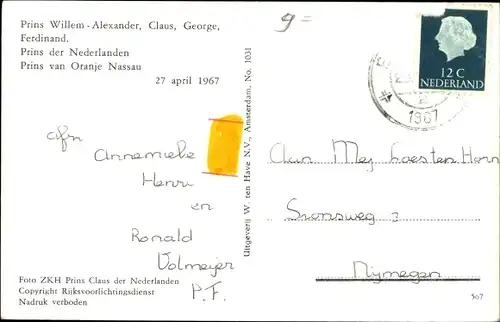 Prins Willem-Alexander, Claus, George,
Ferdinand.
Prins der Nederlanden
Prins van Oranje Nassau
27 april 1967
afn
Annemieke
Henri
en
Ronald
Volmeijer
P.F.
Foto ZKH Prins Claus der Nederlanden
Copyright Rijksvoorlichtingsdienst
Nadruk verboden
Uitgeverij W. ten Have N.V., Amsterdam, No. 1031
g =
12 C
NEDERLAND
1967
Aan Mej
Sionsweg 2
Nijmegen
507